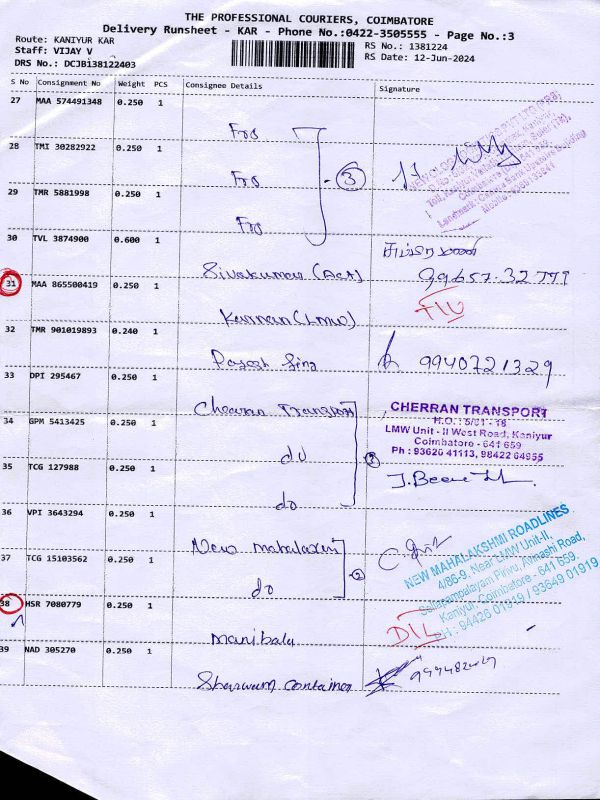 THE PROFESSIONAL COURIERS, COIMBATORE
Delivery Runsheet - KAR - Phone No.:0422-3505555 - Page No.:3
Route: KANIYUR KAR
Staff: VIJAY V
DRS No.: DCJB138122403
RS No.: 1381224
RS Date: 12-Jun-2024
S No Consignment No Weight PCS Consignee Details Signature
27 MAA 574491348 0.250 1
28 TMI 30282922 0.250 1
3
29 TMR 5881998 0.250 1
30 TVL 3874900 0.600 1
Sivakumar (Act)
31 MAA 865500419 0.250 1
Kannan (LMW)
32 TMR 901019893 0.240 1
9940721329
33 DPI 295467 0.250 1
Transport
CHERRAN TRANSPORT
LMW Unit - II West Road, Kaniyur
Coimbatore - 641 659
Ph : 93620 41113, 98422 64955
34 GPM 5413425 0.250 1
du
35 TCG 127988 0.250 1
do
36 VPI 3643294 0.250 1
New mahalaxmi
37 TCG 15103562 0.250 1
do
2
NEW MAHALAKSHMI ROADLINES
4/86-9, Near LMW Unit-II,
Avinashi Road,
Kaniyur, Coimbatore - 641 659.
PH : 94426 01919 / 93649 01919
38 HSR 7080779 0.250 1
Manibala
DIL
39 NAD 305270 0.250 1
Container